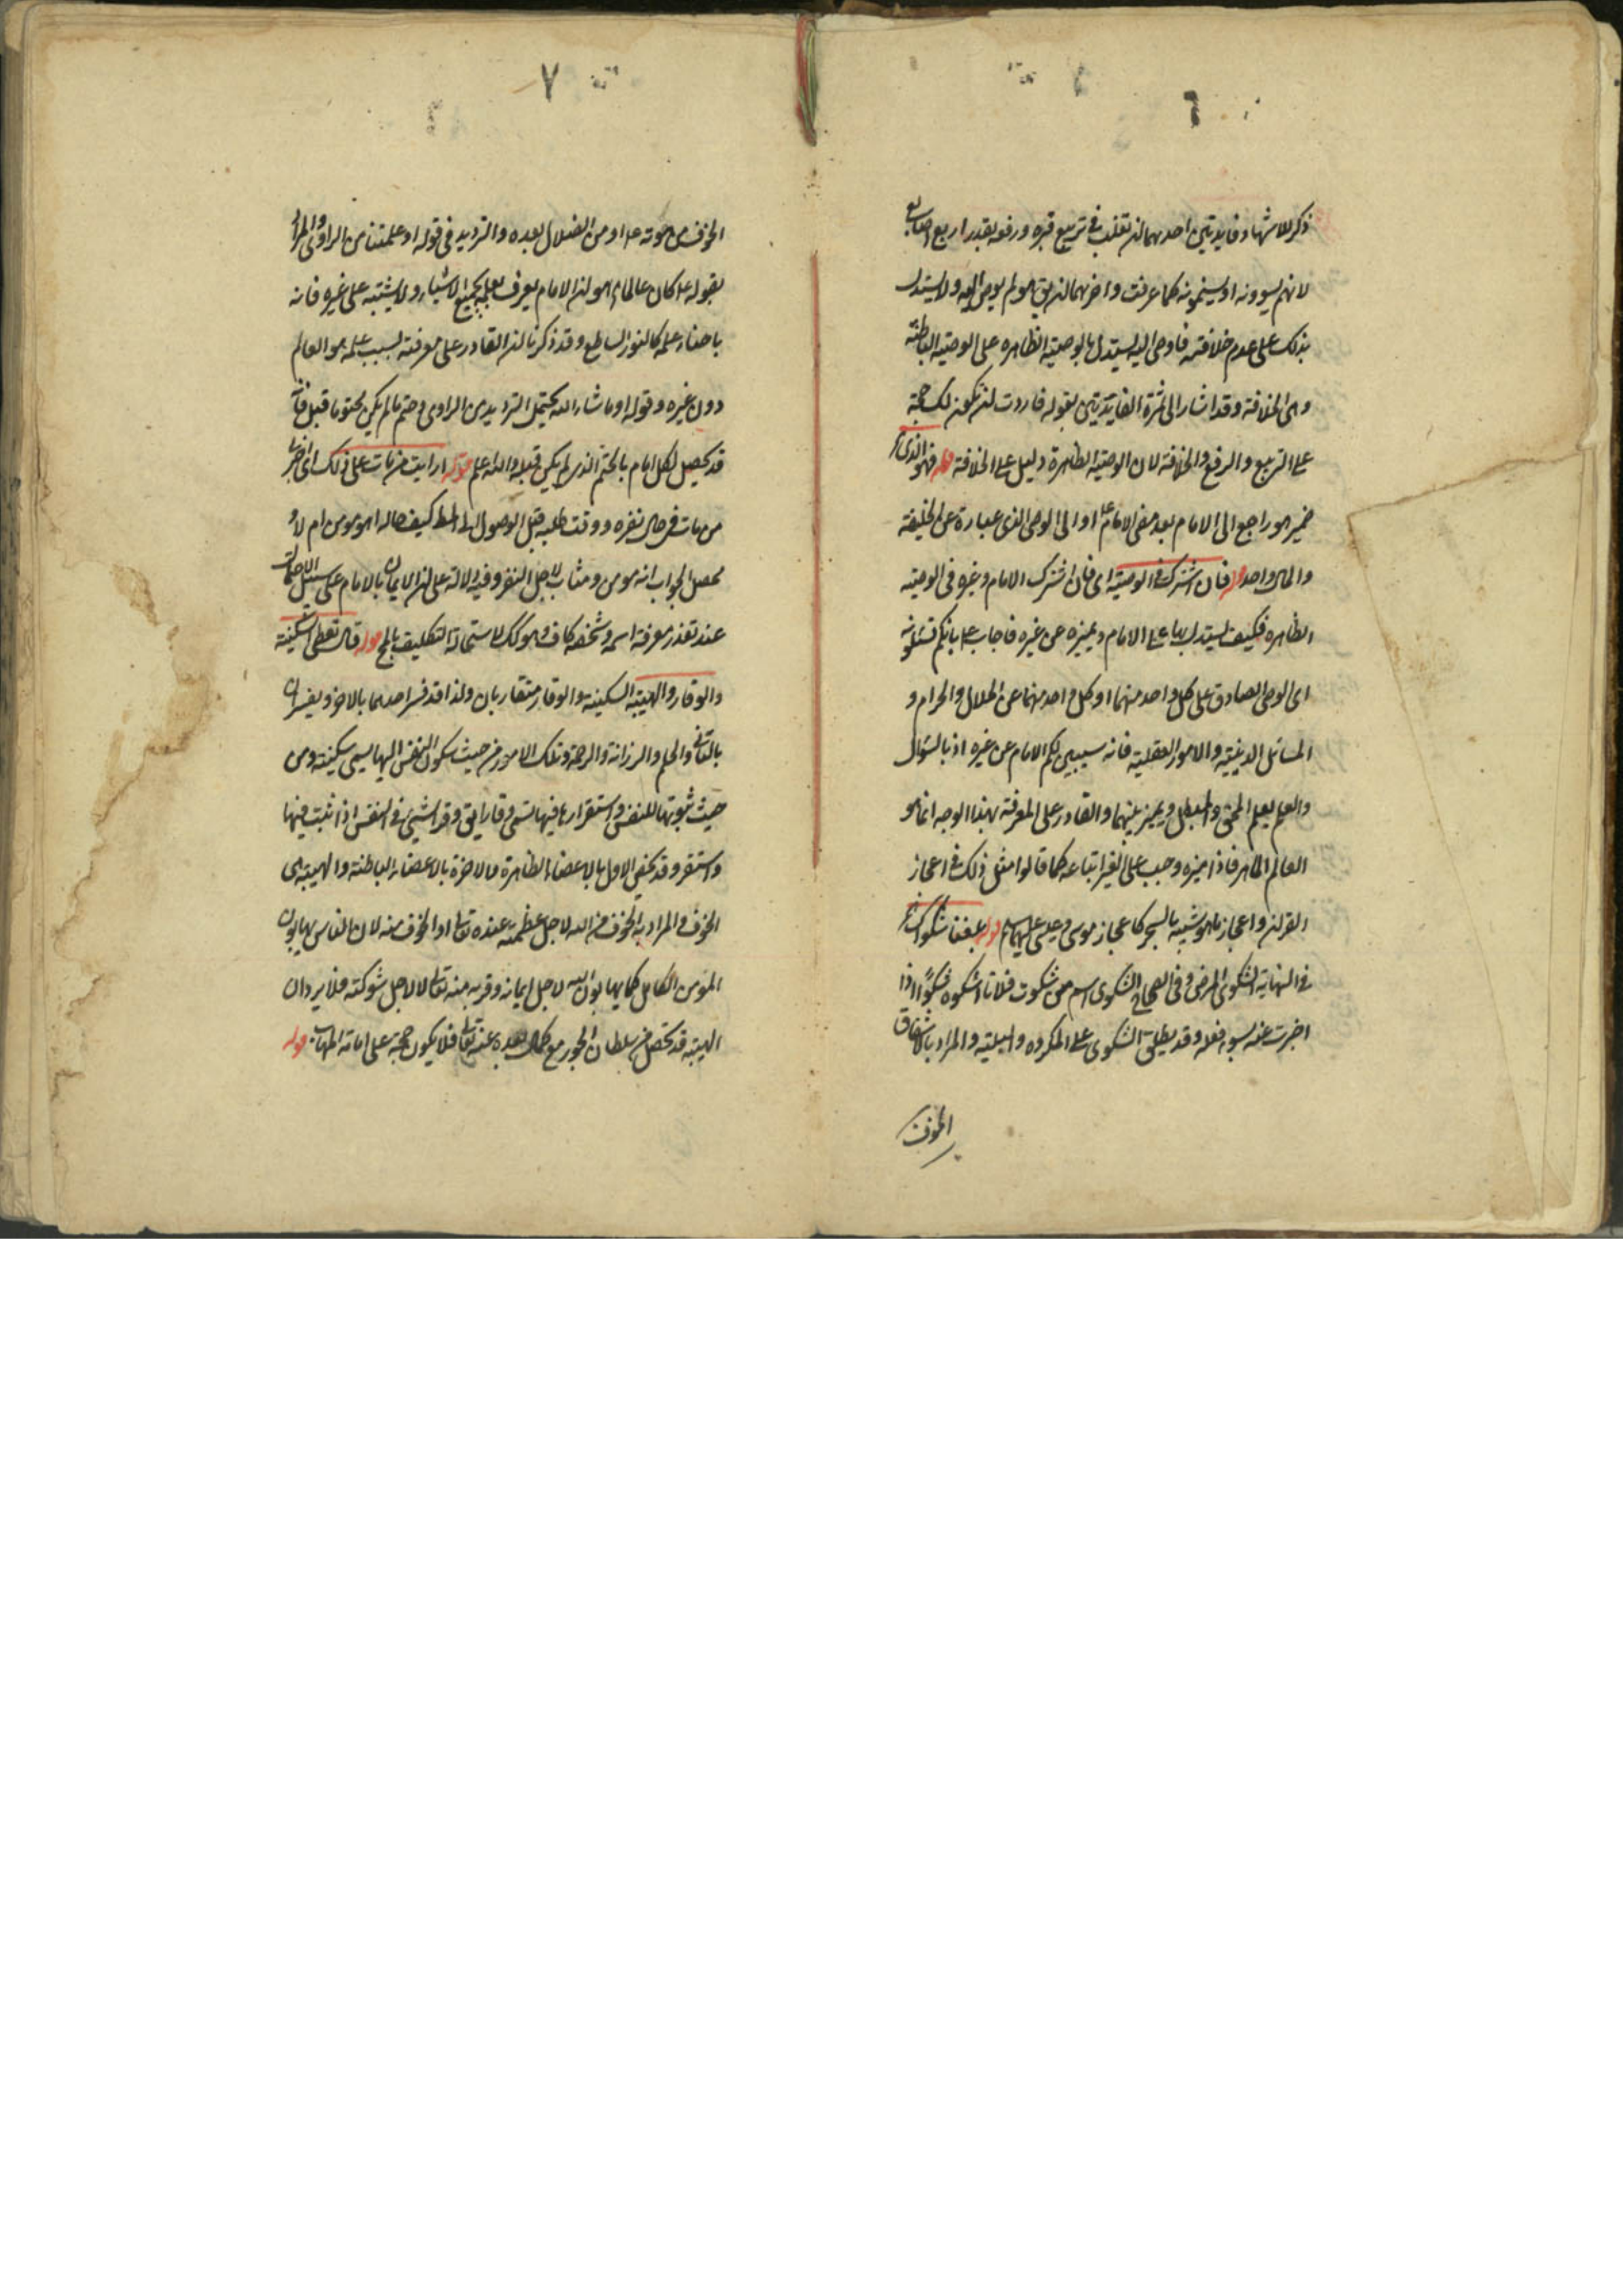 ٦
ذكر للاشهاد فايدتين احدهما ان تغلب في تربيع قبره ورفعه بقدر اربع اصابع
لانهم يسوونه او يسنمونه كما عرفت واخريهما ان يق هو لم يوص اليه ولا يستدل
بذلك على عدم خلافته فاوصى اليه ليستدل بالوصية الظاهره على الوصية الباطنة
وهى الخلافة وقد اشار الى ثمرة الفايدتين بقوله فاردت ان تكون لك حجة
على التربيع والرفع والخلافة لان الوصية الظاهرة دليل على الخلافة قوله فهو الذى
ضمير هو راجع الى الامام بعد مضى الامام او الى الوصى الذى عبارة عن الخليفة
والمال واحد قوله فان اشترك في الوصية اى فان اشترك الامام وغيره فى الوصية
الظاهره فكيف يستدل بها على الامام ويميزه عن غيره فاجاب ع بانكم تسئلونه
اى الوصى الصادق على كل واحد منهما او كل واحد منهما عن الحلال والحرام و
المسائل الدينية والامور العقلية فانه سيبين لكم الامام عن غيره اذ بالسؤال
والعلم يعلم المحق والمبطل ويميز بينهما والقادر على المعرفة بهذا الوجه انما هو
العالم الماهر فاذا ميزه وجب على الغير اتباعه كما قالوا مثل ذلك في اعجاز
القران واعجاز ما هو شبيه بالسحر كاعجاز موسى وعيسى عليهما السلام قوله بلغنا شكواك
في النهاية الشكوى المرض وفى الصحاح الشكوى اسم من شكوت فلانا اشكوه شكوًا اذا
اخبرت عنه بسوء فعله وقد يطلق الشكوى على المكروه والبلية والمراد بالاشفاق
الخوف
٧
الخوف من موته ع او من الضلال بعده والترديد فى قوله او علمتنا من الراوى والمراد
بقوله ع كان عالما هو ان الامام يعرف بعلمه بجميع الاشياء ولا يشتبه على غيره فانه
باضاءة علمه كالنور الساطع وقد ذكرنا ان القادر على معرفته بسبب علمه هو العالم
دون غيره وقوله او ما شاء الله يحتمل الترديد من الراوى وحتم ما لم يكن محتوما قبل فانه
قد يحصل لكل امام بالحتم الذى لم يكن قبله والله اعلم قوله ارايت من مات على ذلك اى اخبرنا
من مات فى حال نفره ووقت طلبه قبل الوصول الى المط كيف حاله اهو مومن ام لا و
محصل الجواب انه مومن ومثاب لاجل النفر وفيه دلالة على ان الايمان بالامام على سبيل الاجمال
عند تعذر معرفة اسمه وشخصه كاف وهو كك لاستحالة التكليف بالمح قوله قال تعطى السكينة
والوقار والهيبة السكينة والوقار متقاربان ولذا قد فسر احدهما بالاخر ويفسران
بالتانى والحلم والرزانة والرحمة وتلك الامور من حيث سكون النفس اليها يسمى سكينة ومن
حيث ثبوتها للنفس واستقرارها فيها تسمى وقارا يق وقر الشيئ فى النفس اذا ثبت فيها
واستقر وقد يخص الاول بالاعضاء الظاهرة والاخرة بالاعضاء الباطنة والهيبة هى
الخوف والمراد به الخوف من الله لاجل عظمته عنده تعالى او الخوف منه لان الناس يهابون
المؤمن الكامل كما يهابون الله لاجل ايمانه وقربه منه تعالى لا لاجل شوكته فلا يرد ان
الهيبة قد تحصل من سلطان الجور مع كمال بعده عنه تعالى فلا يكون حجة على امامة المهاب قوله